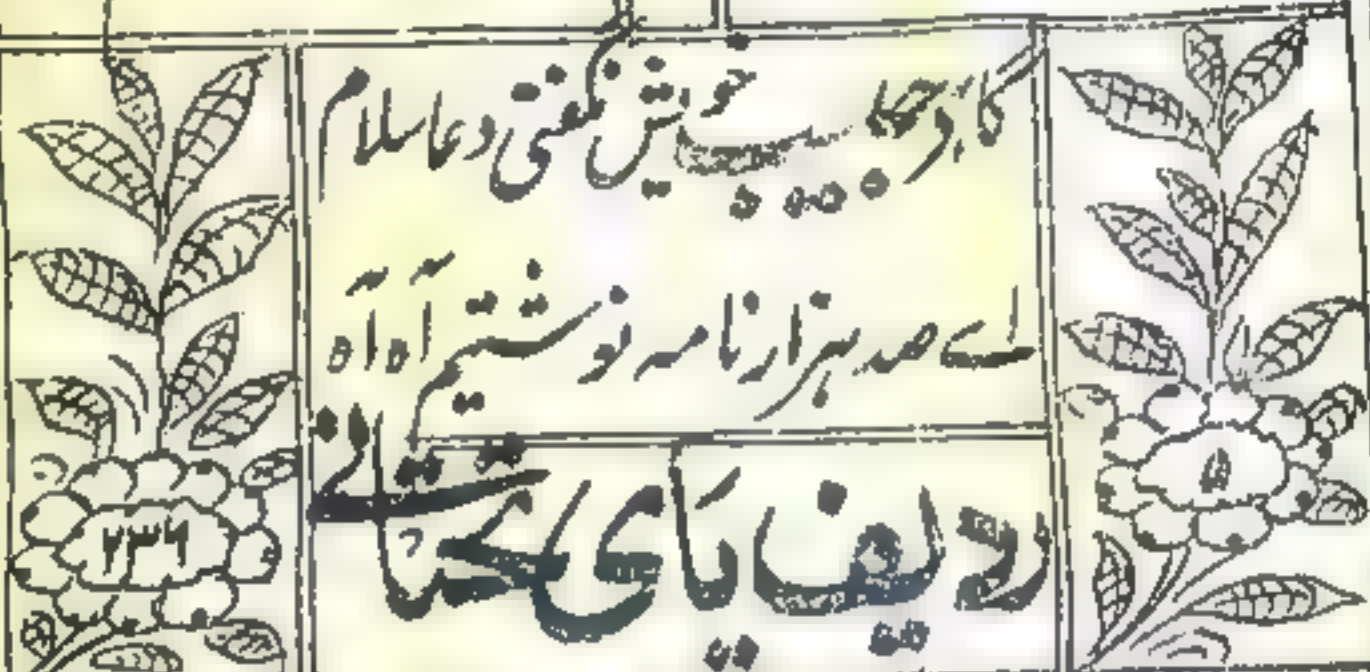 گاہ در حجاب خویش نگفتی دعا سلام
اے صد ہزار نامہ نوشتیم آہ آہ
ردیف یای تحتانے
۵
۲۳۶